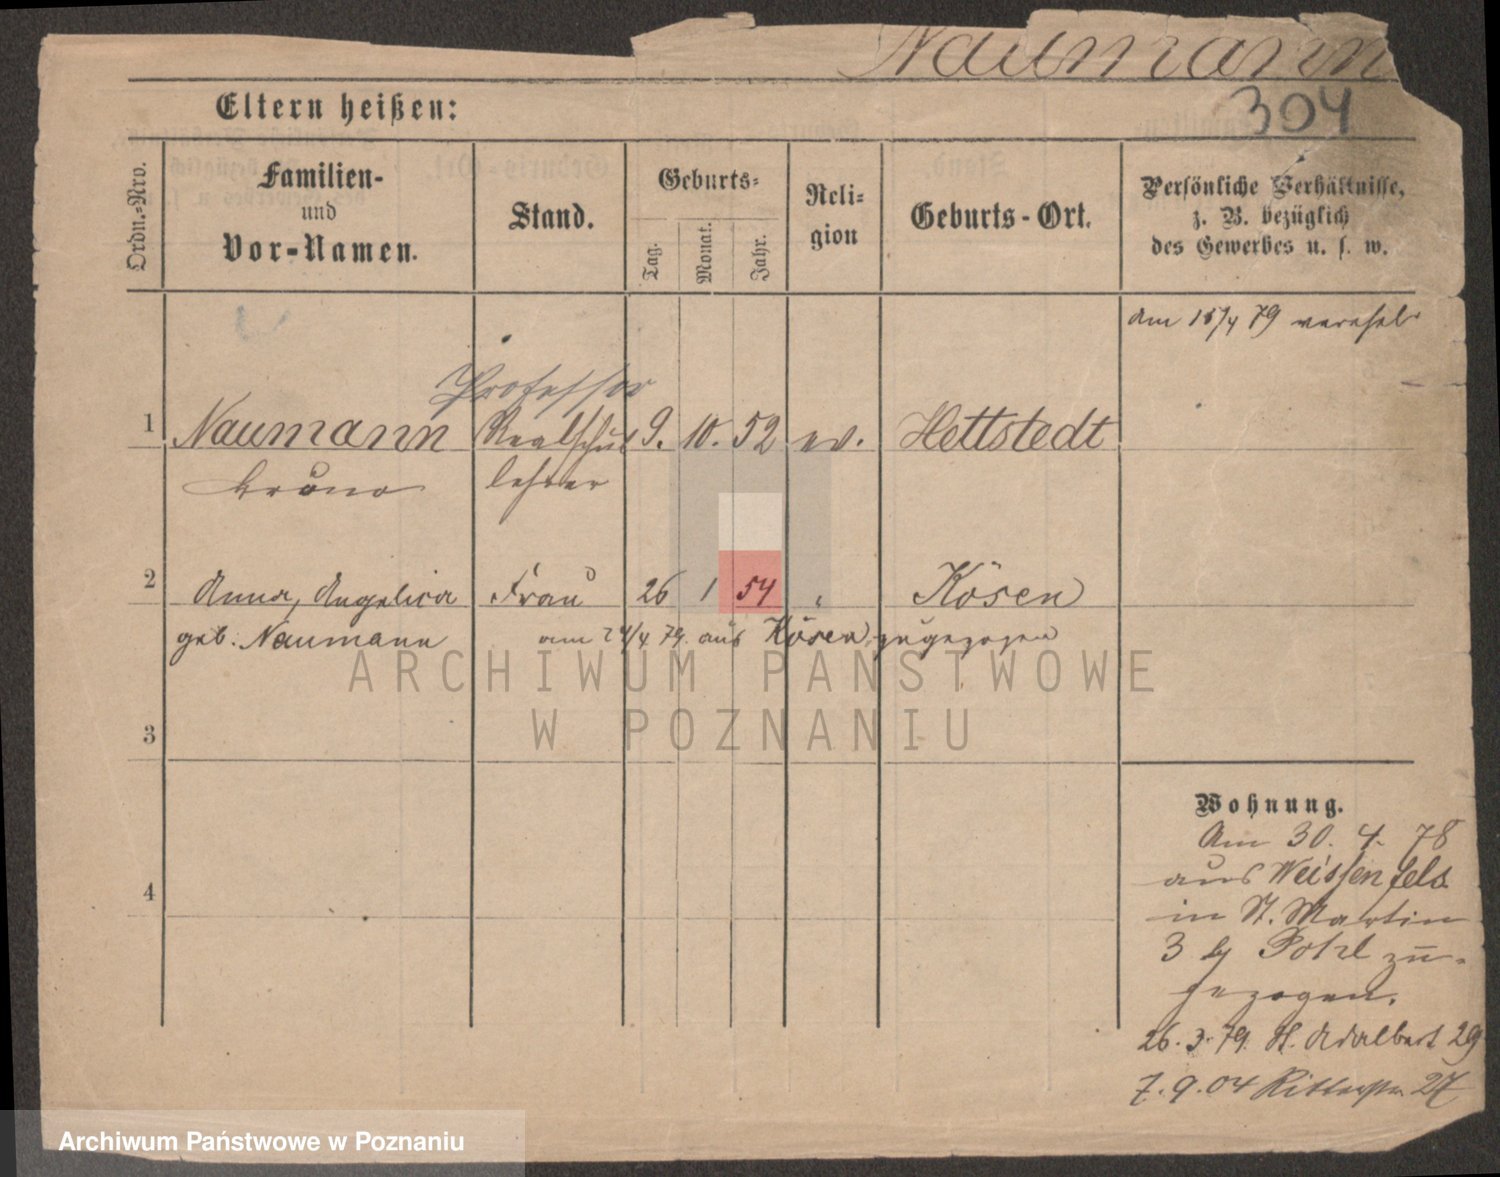 Naumann
304
Eltern heißen:
Ordn.-Nro.
Familien- und Vor-Namen.
Stand.
Geburts-
Tag.
Monat.
Jahr.
Reli-gion
Geburts-Ort.
Persönliche Verhältnisse,
z. B. bezüglich
des Gewerbes u. s. w.
am 15/4 79 verehel.
Professor
1 Naumann Realschul 9. 10. 52 ev. Hettstedt
lehrer
2 Anna, Angelica Frau 26 1 54 Kösen
geb. Naumann am 24/4 79. aus Kösen zugezogen
ARCHIWUM PAŃSTWOWE
W POZNANIU
3
Wohnung.
Am 30. 4. 78
aus Weissenfels
4
in St. Martin
3 bei Pohl zu-
gezogen.
26. 3. 79. St. Adalbert 29
7. 9. 04 Ritterstr. 27
Archiwum Państwowe w Poznaniu